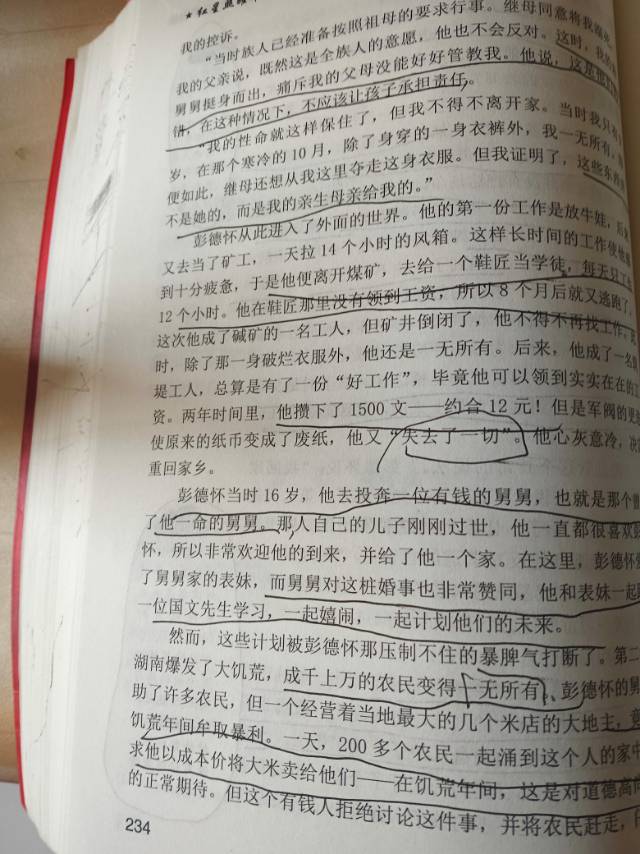 ★红星照耀
我的控诉。
“当时族人已经准备按照祖母的要求行事。继母同意将我溺死，
我的父亲说，既然这是全族人的意愿，他也不会反对。这时，我的
舅舅挺身而出，痛斥我的父母没能好好管教我。他说，这是他们的
错，在这种情况下，不应该让孩子承担责任。
“我的性命就这样保住了，但我不得不离开家。当时我只有
岁，在那个寒冷的10月，除了身穿的一身衣裤外，我一无所有。
便如此，继母还想从我这里夺走这身衣服。但我证明了，这些东西
不是她的，而是我的亲生母亲给我的。”
彭德怀从此进入了外面的世界。他的第一份工作是放牛娃，后
又去当了矿工，一天拉14个小时的风箱。这样长时间的工作使他
到十分疲惫，于是他便离开煤矿，去给一个鞋匠当学徒，每天只工
12个小时。他在鞋匠那里没有领到工资，所以8个月后就又逃跑了。
这次他成了碱矿的一名工人，但矿井倒闭了，他不得不再找工作。
时，除了那一身破烂衣服外，他还是一无所有。后来，他成了一名
堤工人，总算是有了一份“好工作”，毕竟他可以领到实实在在的工
资。两年时间里，他攒下了1500文——约合12元！但是军阀的
使原来的纸币变成了废纸，他又“失去了一切”。他心灰意冷，决
重回家乡。
彭德怀当时16岁，他去投奔一位有钱的舅舅，也就是那个
了他一命的舅舅。那人自己的儿子刚刚过世，他一直都很喜欢彭
怀，所以非常欢迎他的到来，并给了他一个家。在这里，彭德怀
了舅舅家的表妹，而舅舅对这桩婚事也非常赞同，他和表妹一起
一位国文先生学习，一起嬉闹，一起计划他们的未来。
然而，这些计划被彭德怀那压制不住的暴脾气打断了。第二
湖南爆发了大饥荒，成千上万的农民变得一无所有。彭德怀的舅
助了许多农民，但一个经营着当地最大的几个米店的大地主，
饥荒年间牟取暴利。一天，200多个农民一起涌到这个人的家中
求他以成本价将大米卖给他们——在饥荒年间，这是对道德高
的正常期待。但这个有钱人拒绝讨论这件事，并将农民赶走，
234